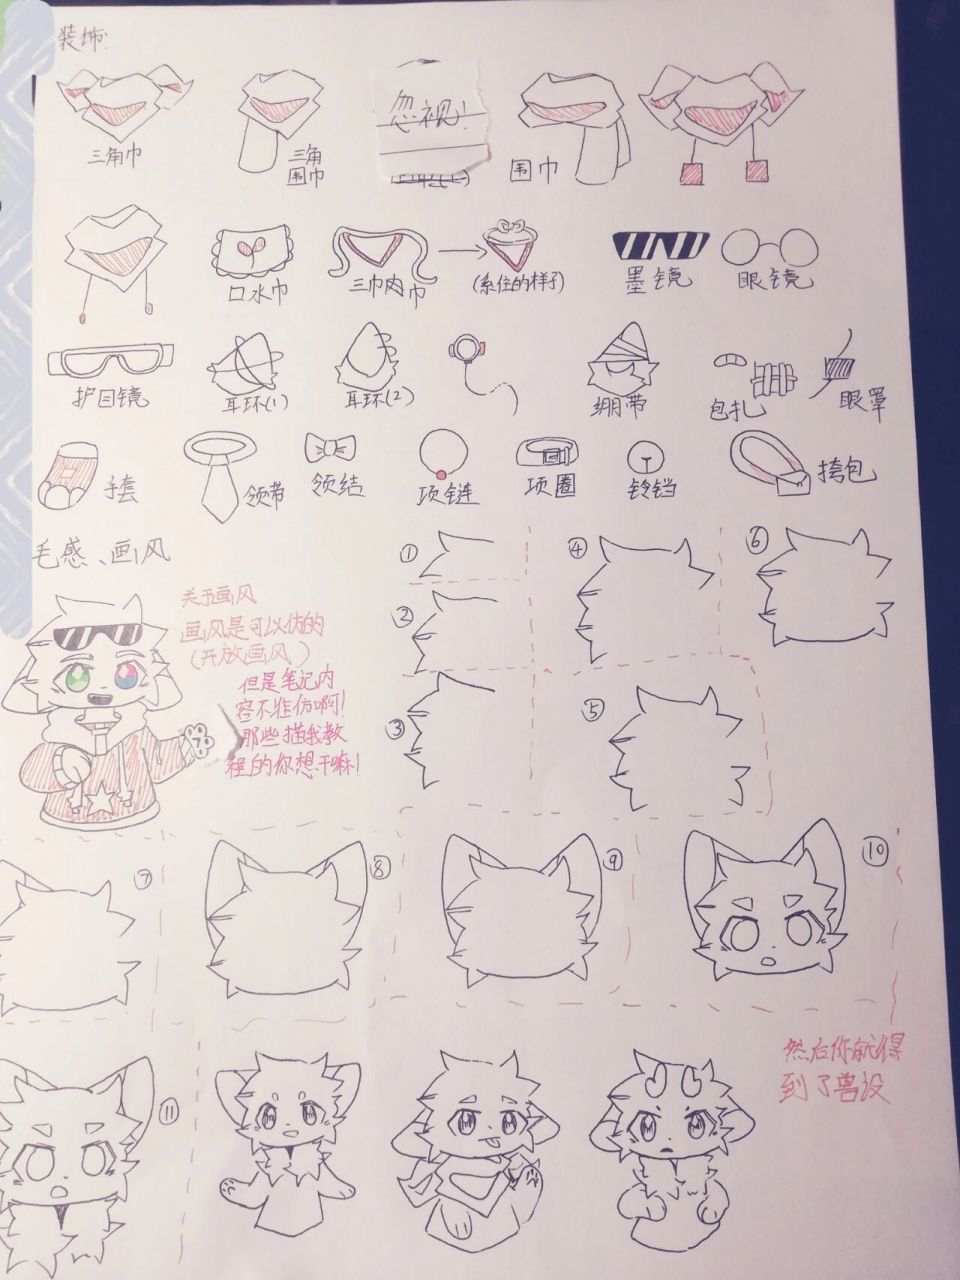 装饰:
三角巾
三角
围巾
忽视!
围巾
口水巾
三巾内巾
(系住的样子)
墨镜
眼镜
护目镜
耳环(1)
耳环(2)
绷带
包扎
眼罩
手套
领带
领结
项链
项圈
铃铛
挎包
毛感、画风
关于画风
画风是可以仿的
(开放画风)
但是笔记内
容不准仿啊!
那些描我教
程的你想干嘛!
①
②
③
④
⑤
⑥
⑦
⑧
⑨
⑩
⑪
然后你就得
到了兽设